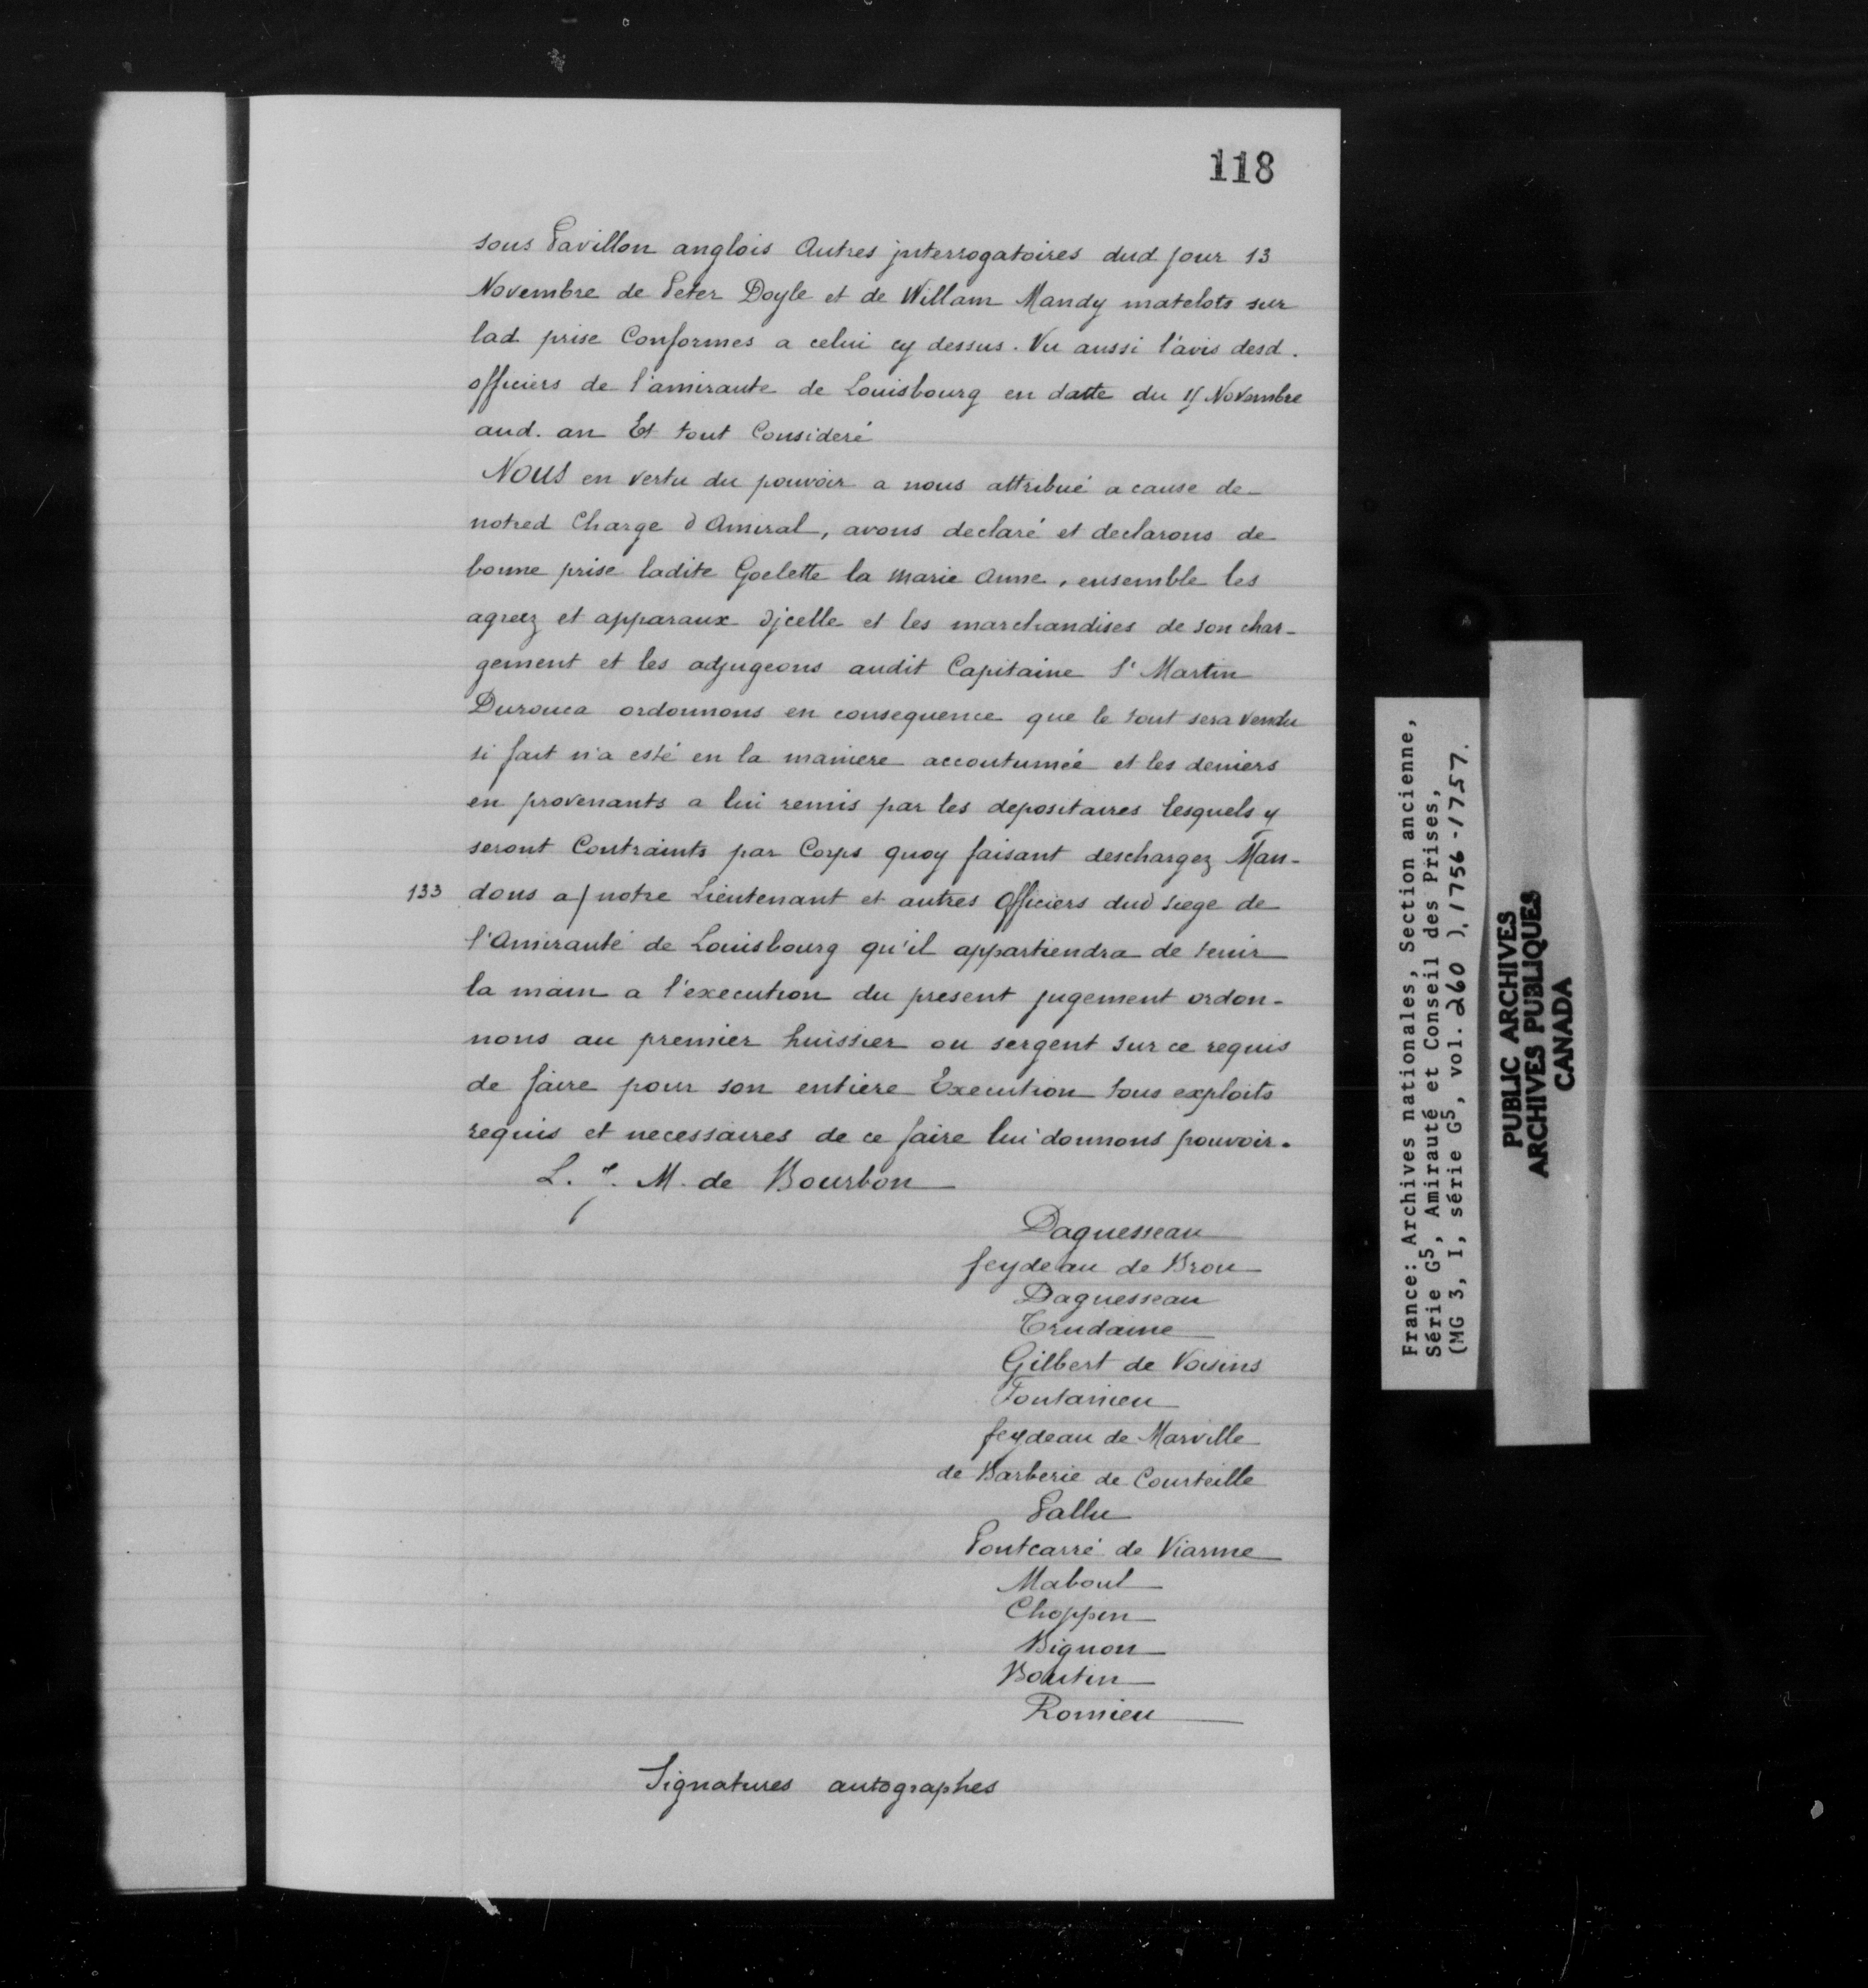 118
sous Pavillon anglois Autres jnterrogatoires dud jour 13
Novembre de Peter Doyle et de Willam Mandy matelots sur
lad prise Conformes a celui cy dessus. Vu aussi l'avis desd.
officiers de l'amiraute de Louisbourg en datte du Novembre
aud. an Et tout Consideré
NOUS en vertu du pouvoir a nous attribué a cause de
notred Charge d'Amiral, avons declaré et declarons de
bonne prise ladite Goelette la Marie Anne, ensemble les
agreez et apparaux djcelle et les marchandises de son char-
gement et les adjugeons audit Capitaine St Martin
Durouca ordonnons en consequence que le tout sera vendu
si fait n'a esté en la maniere accoutumée et les deniers
en provenants a lui remis par les depositaires lesquels y
seront Contraints par Corps quoy faisant deschargez Man-
133 dons a/ notre Lieutenant et autres Officiers dud siege de
l'Amirauté de Louisbourg qu'il appartiendra de tenir
la main a l'execution du present jugement ordon-
nons au premier huissier ou sergent sur ce requis
de faire pour son entiere Execution tous exploits
requis et necessaires de ce faire lui donnons pouvoir.
L. J. M. de Bourbon
Daguesseau
feydeau de Brou
Daguesseau
Trudaine
Gilbert de Voisins
Fontanieu
feydeau de Marville
de Barberie de Courteille
Pallu
Pontcarré de Viarme
Maboul
Choppin
Bignon
Boutin
Romieu
Signatures autographes
France: Archives nationales, Section ancienne,
Série G5, Amirauté et Conseil des Prises,
(MG 3, I, série G5, vol. 260 ), 1756-1757.
PUBLIC ARCHIVES
ARCHIVES PUBLIQUES
CANADA